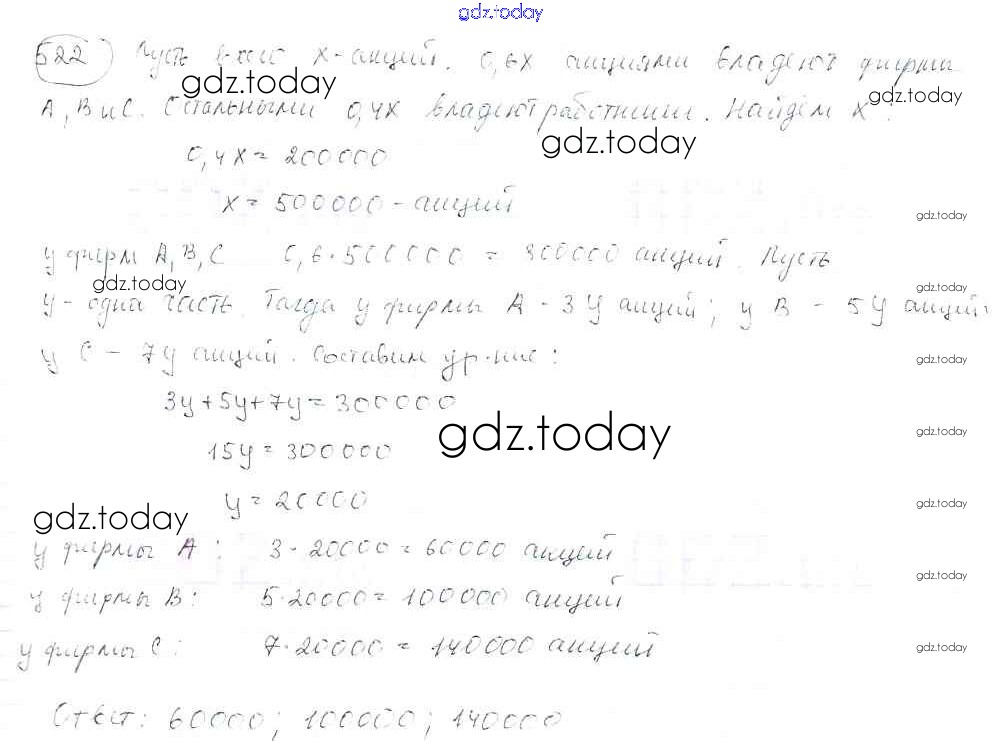 gdz.today
522 Пусть всего x-акций. 0,6x акциями владеют фирмы
gdz.today
gdz.today
А, В и С. Остальными 0,4x владеют работники. Найдём x:
gdz.today
0,4x = 200000
x = 500000 - акций
gdz.today
у фирм А, В, С 0,6·500000 = 300000 акций. Пусть
gdz.today
gdz.today
y - одна часть. Тогда у фирмы А - 3y акций; у В - 5y акций;
у С - 7y акций. Составим ур-ние:
gdz.today
3y+5y+7y=300000
gdz.today
gdz.today
15y=300000
y = 20000
gdz.today
gdz.today
у фирмы А: 3·20000=60000 акций
gdz.today
у фирмы В: 5·20000=100000 акций
у фирмы С: 7·20000 = 140000 акций
gdz.today
Ответ: 60000; 100000; 140000